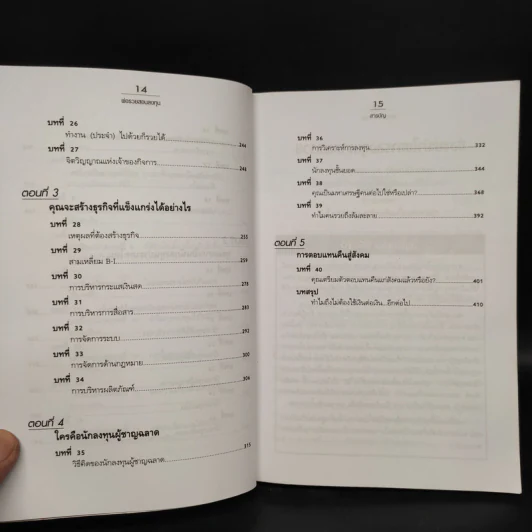 14
พ่อรวยสอนลงทุน
บทที่ 26
ทำงาน (ประจำ) ไปด้วยก็รวยได้ 244
บทที่ 27
จิตวิญญาณแห่งเจ้าของกิจการ 248
ตอนที่ 3
คุณจะสร้างธุรกิจที่แข็งแกร่งได้อย่างไร
บทที่ 28
เหตุผลที่ต้องสร้างธุรกิจ 255
บทที่ 29
สามเหลี่ยม B-I 259
บทที่ 30
การบริหารกระแสเงินสด 278
บทที่ 31
การบริหารการสื่อสาร
บทที่ 32
การจัดการระบบ
บทที่ 33
การจัดการด้านกฎหมาย 300
บทที่ 34
การบริหารผลิตภัณฑ์ 306
ตอนที่ 4
ใครคือนักลงทุนผู้ชาญฉลาด
บทที่ 35
วิธีคิดของนักลงทุนผู้ชาญฉลาด 313
15
สารบัญ
บทที่ 36
การวิเคราะห์การลงทุน 332
บทที่ 37
นักลงทุนชั้นยอด 344
บทที่ 38
คุณเป็นมหาเศรษฐีคนต่อไปใช่หรือเปล่า? 368
บทที่ 39
ทำไมคนรวยถึงล้มละลาย 392
ตอนที่ 5
การตอบแทนคืนสู่สังคม
บทที่ 40
คุณเตรียมตัวตอบแทนคืนแก่สังคมแล้วหรือยัง? 401
บทสรุป
ทำไมถึงไม่ต้องใช้เงินต่อเงิน...อีกต่อไป 410